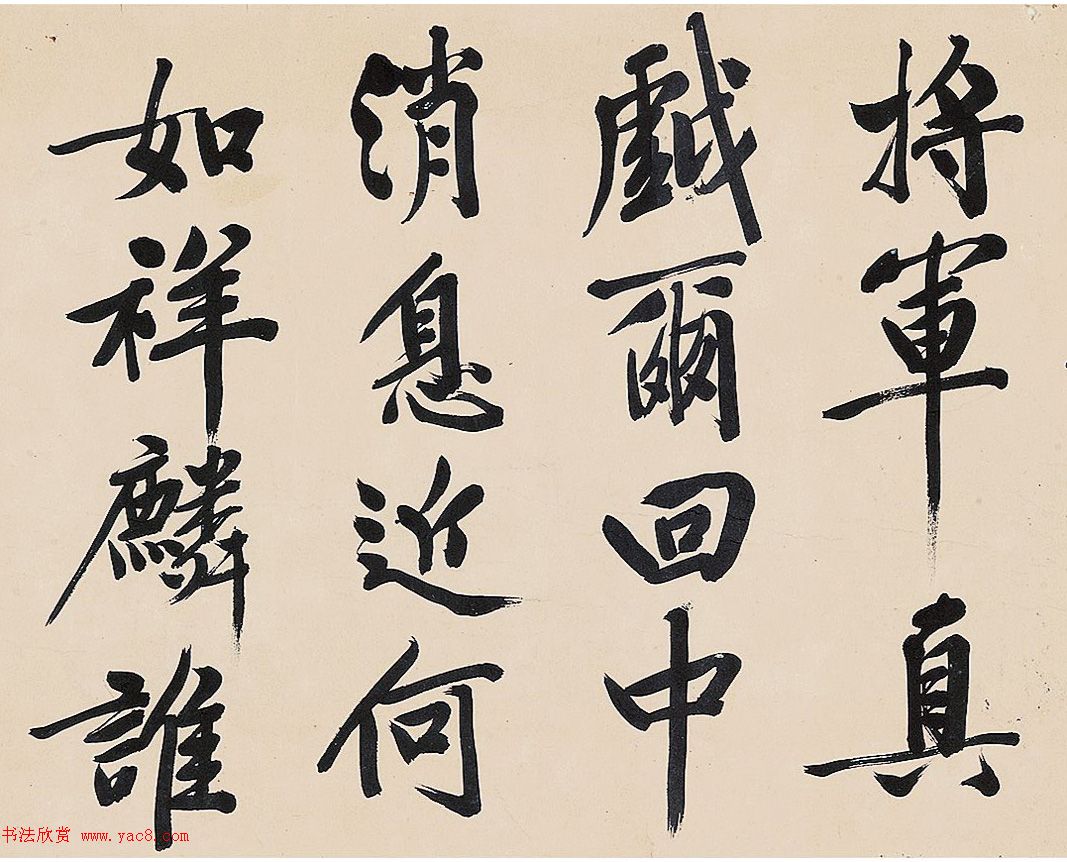 將軍真
戲爾回中
消息近何
如祥麟誰
书法欣赏 www.yac8.com